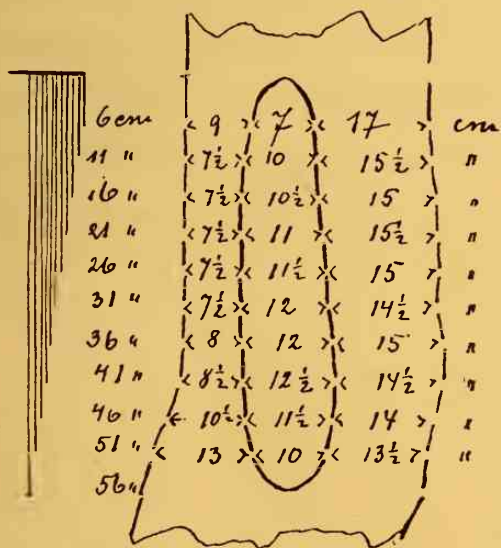 6cm 9 7 17 cm
11 " 7½ 10 15½ "
16 " 7½ 10½ 15 "
21 " 7½ 11 15½ "
26 " 7½ 11½ 15 "
31 " 7½ 12 14½ "
36 " 8 12 15 "
41 " 8½ 12½ 14½ "
46 " 10½ 11½ 14 "
51 " 13 10 13½ "
56 "